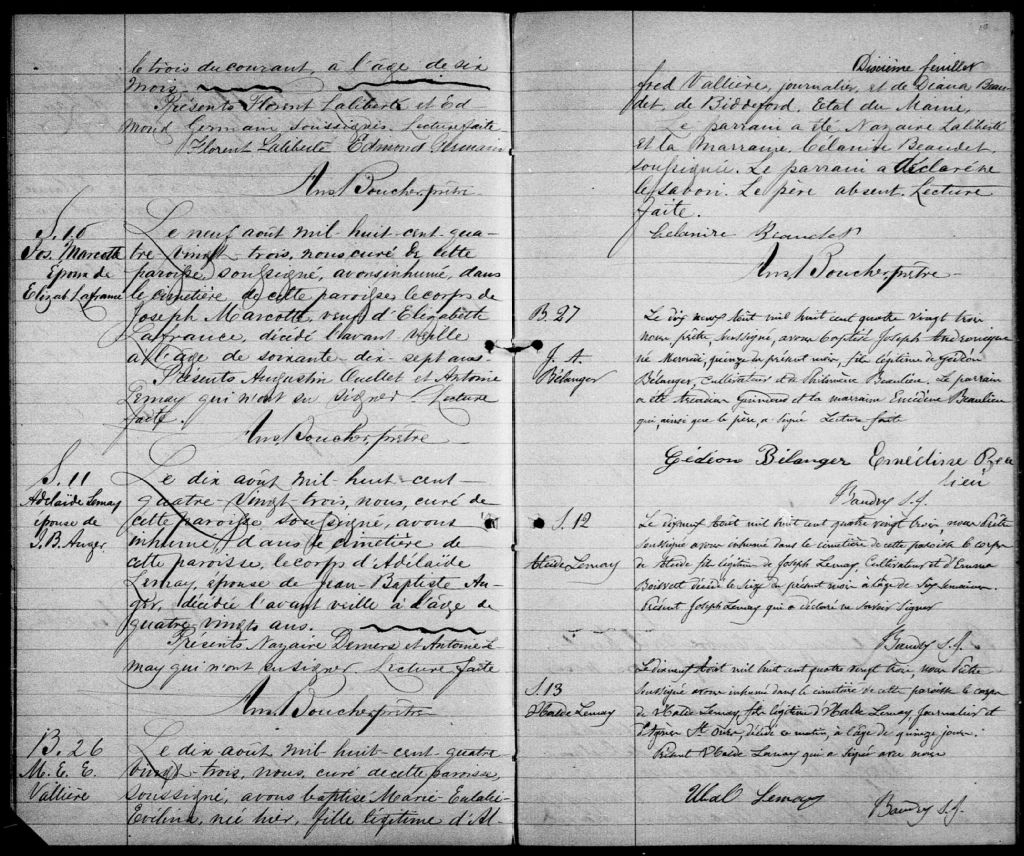 le trois du courant, à l'âge de six
mois.
Présents Florent Laliberté et Ed
mond Germain soussignés. Lecture faite
Florent Laliberté Edmond Germain
Ans. Boucher, ptre
S. 10
Jos. Marcotte
Epoux de
Elizabt Lafrance
Le neuf août mil huit-cent-qua-
tre vingt-trois, nous curé de cette
paroisse soussigné, avons inhumé, dans
le cimetière de cette paroisse le corps de
Joseph Marcotte, veuf d'Elizabeth
Lafrance, décidé l'avant veille
à l'âge de soixante-dix-sept ans.
Présents Augustin Ouellet et Antoine
Lemay qui n'ont su signer. Lecture
faite.
Ans. Boucher, prêtre
S. 11
Adélaïde Lemay
épouse de
J. B. Auger
Le dix août mil huit-cent-
quatre-vingt-trois, nous, curé de
cette paroisse soussigné, avons
inhumé, dans le cimetière de
cette paroisse, le corps d'Adélaïde
Lemay, épouse de Jean-Baptiste Au-
ger, décidée l'avant veille à l'âge de
quatre vingts ans.
Présents Nazaire Demers et Antoine Le-
may qui n'ont su signer. Lecture faite
Ans. Boucher, prêtre
B. 26
M. E. E.
Vallière
Le dix août mil huit-cent-quatre
vingt-trois, nous, curé de cette paroisse,
soussigné, avons baptisé Marie-Eulalie-
Evilina, née hier, fille légitime d'Al-
Dixième feuillet
fred Vallière, journalier, et de Diana Beau-
det, de Biddeford, Etat du Maine,
Le parrain a été Nazaire Laliberté
et la Marraine, Célanire Beaudet,
soussignée. Le parrain a déclaré ne
le savoir. Le père absent. Lecture
faite.
Célanire Beaudet
Ans. Boucher, prêtre
B. 27
J. A.
Bélanger
Le dix neuf Août mil huit cent quatre vingt trois
nous prêtre soussigné, avons baptisé Joseph
né Mercredi, quinze du présent mois, fils légitime de Gédéon
Bélanger, cultivateur et de Philomène Beaulieu. Le parrain
a été et la marraine Emédine Beaulieu
qui, ainsi que le père, a signé Lecture faite
Gédéon Bélanger Emédine Beau
lieu
Baudry S. J.
S. 12
Lemay
Le dixneuf Août mil huit cent quatre vingt trois nous Prêtre
soussigné avons inhumé dans le cimetière de cette paroisse le corps
de fils légitime de Joseph Lemay, Cultivateur et d'Emma
Boisvert décidé le seize du présent mois à l'âge de Six semaines.
Présent Joseph Lemay qui a déclaré ne savoir signer
Baudry S. J.
S. 13
Lemay
Le dixneuf Août mil huit cent quatre vingt trois, nous Prêtre
soussigné avons inhumé dans le cimetière de cette paroisse le corps
de Lemay fils légitime d' Lemay, Journalier et
décidé ce matin, à l'âge de quinze jours.
Présent Lemay qui a signé avec nous
Lemay
Baudry S. J.